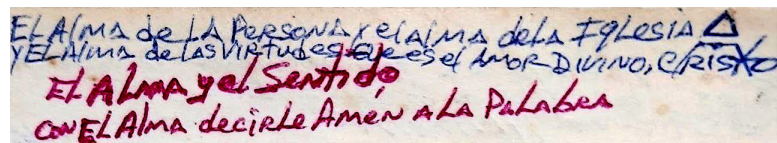 El Alma de LA PersonA y el alma de la Iglesia △
y El Alma de las virtudes que es el Amor Divino, Cristo
El Alma y el Sentido,
con El Alma decirle Amen A La Palabra